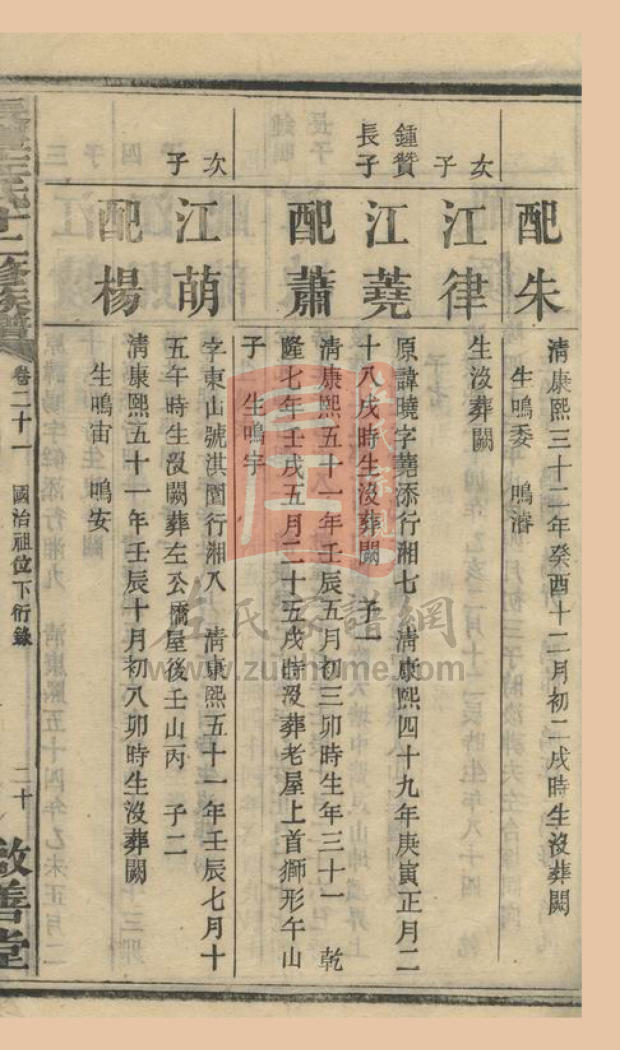 配朱
清康熙三十二年癸酉十二月初二戌時生沒葬闕
生鳴委 鳴濬
次子
江律
生沒葬闕
鍾贊長子
江蕘
原諱曉字蕘添行湘七 清康熙四十九年庚寅正月二
十八戌時生沒葬闕 子一
配蕭
清康熙五十一年壬辰五月初三卯時生年三十一 乾
隆七年壬戌五月二十五戌時沒葬老屋上首獅形午山
子 生鳴宇
次子
江萌
字東山號淇園行湘八 清康熙五十一年壬辰七月十
五午時生沒闕葬左公僑屋後壬山丙 子二
配楊
清康熙五十一年壬辰十月初八卯時生沒葬闕
生鳴宙 鳴安
左氏十二修族譜
卷二十一 國治祖位下衍錄
二十
敦善堂
左氏宗親
左氏家譜網
www.zuohome.com